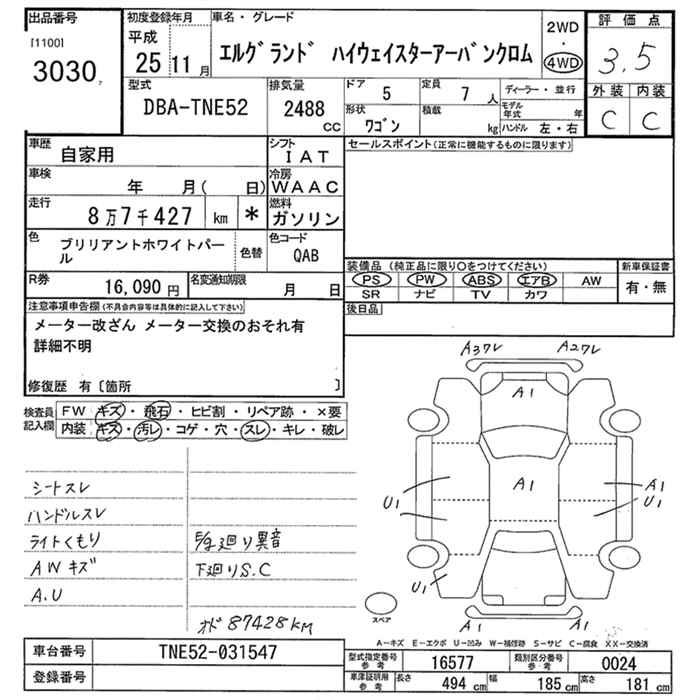 出品番号
[1100]
3030
初度登録年月
平成
25 11 月
車名・グレード
エルグランド ハイウェイスターアーバンクロム
2WD
・
4WD
評価点
3.5
外装 内装
C C
型式
DBA-TNE52
排気量
2488
CC
ドア 5
定員 7 人
形状
ワゴン
積載
kg
ディーラー・並行
モデル年式 年
ハンドル 左・右
車歴
自家用
シフト
IAT
車検
年 月( 日)
冷房
WAAC
走行
8万7千427 km *
燃料
ガソリン
色
ブリリアントホワイトパール
色替
色コード
QAB
R券
16,090 円
名変通知期限
月 日
セールスポイント(正常に機能するものに限ります)
装備品 (純正品に限り○をつけてください)
PS PW ABS エアB AW
SR ナビ TV カワ
新車保証書
有・無
後日品
注意事項申告欄(不具合内容等は具体的に記入して下さい)
メーター改ざん メーター交換のおそれ有
詳細不明
修復歴 有〔箇所 〕
検査員記入欄
FW キズ・飛石・ヒビ割・リペア跡・×要
内装 キズ・汚レ・コゲ・穴・スレ・キレ・破レ
シートスレ
ハンドルスレ
ライトくもり
AWキズ
A.U
E/g廻り異音
下廻りS.C
オド 87428KM
A3ワレ A2ワレ
A1
A1
U1
A1
U1
U1
A1
スペア
A-キズ E-エクボ U-凹み W-補修跡 S-サビ C-腐食 XX-交換済
車台番号 TNE52-031547
登録番号
型式指定番号 参考 16577
類別区分番号 参考 0024
車庫証明用 参考 長さ 494 cm 幅 185 cm 高さ 181 cm